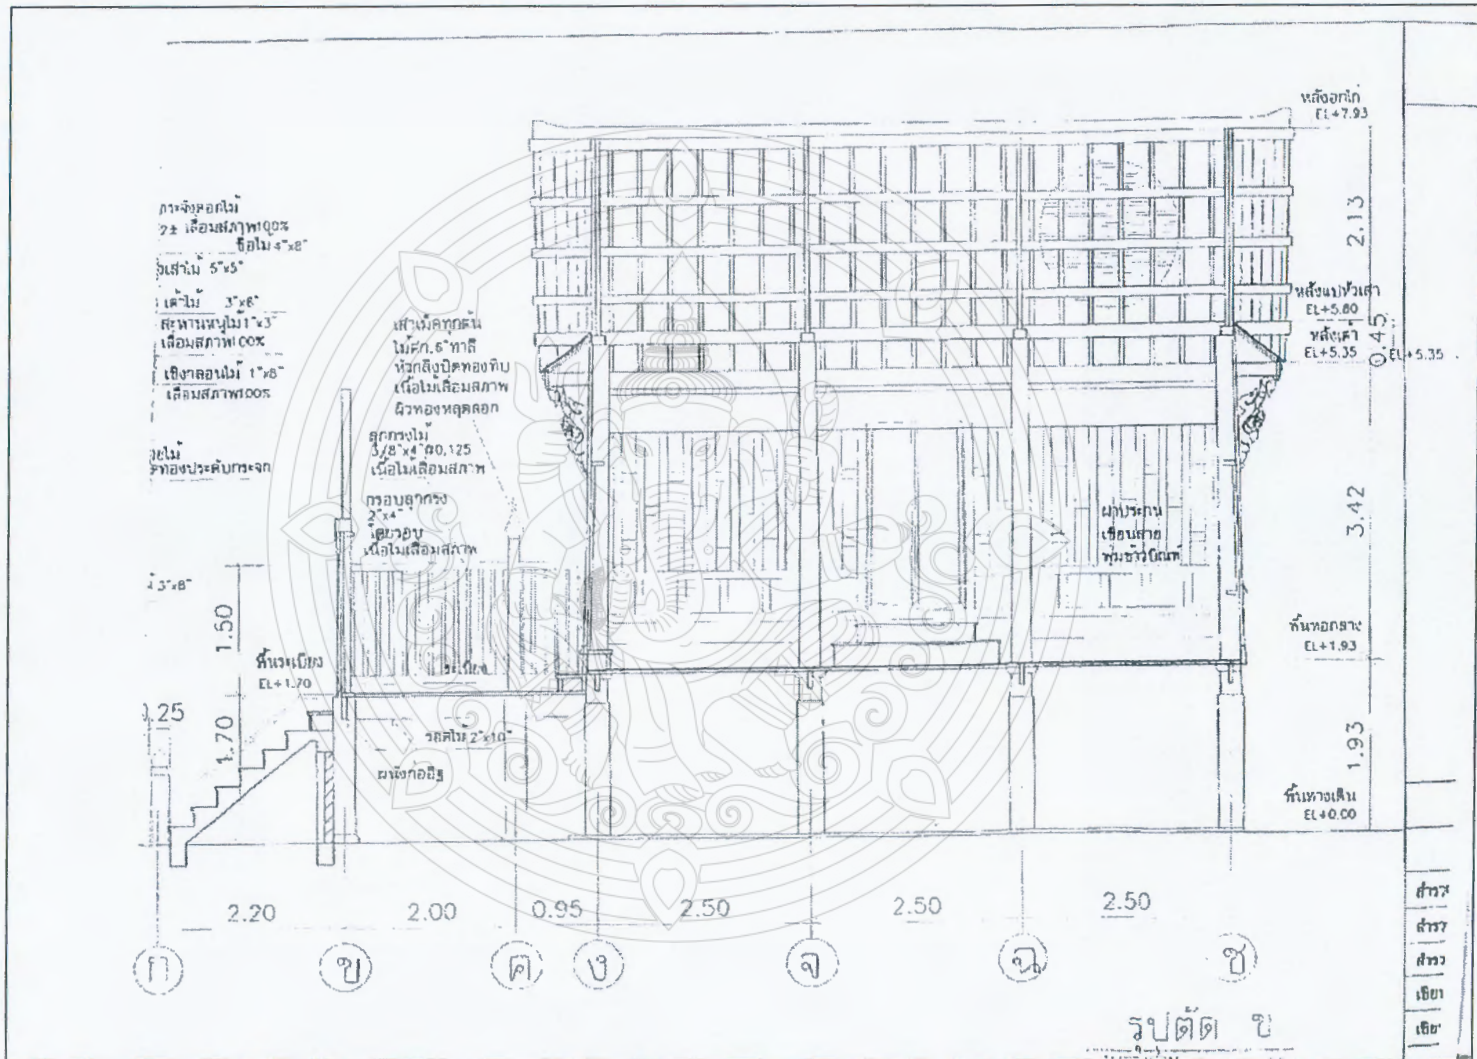 หลังอกไก่
EL+7.93
2.13
หลังแปหัวเสา
EL+5.80
หลังเต้า
EL+5.35
0.45
EL+5.35
3.42
พื้นหอกลาง
EL+1.93
1.93
พื้นทางเดิน
EL+0.00
กระจังคอกไม้
2± เสื่อมสภาพ100%
ขื่อไม้ 4"x8"
เสาไม้ 5"x5"
เต้าไม้ 3"x6"
สะพานหนูไม้ 1"x3"
เสื่อมสภาพ100%
เชิงกลอนไม้ 1"x8"
เสื่อมสภาพ100%
ทองประดับกระจก
3"x8"
เสาเม็ดทุกต้น
ไม้ศก.6"ทาสี
หัวกลึงปิดทองทึบ
เนื้อไม้เสื่อมสภาพ
ผิวทองหลุดลอก
ลูกกรงไม้
3/8"x4"@0.125
เนื้อไม้เสื่อมสภาพ
กรอบลูกกรง
2"x4"
โดยรอบ
เนื้อไม้เสื่อมสภาพ
ฝาประกน
เขียนลาย
พุ่มข้าวบิณฑ์
1.50
พื้นระเบียง
EL+1.70
ระเบียง
1.70
.25
รอดไม้ 2"x10"
ผนังก่ออิฐ
2.20
2.00
0.95
2.50
2.50
2.50
ก
ข
ค
ง
จ
ฉ
ช
รูปตัด ข
สำรว
สำรว
สำรว
เขีย
เขีย